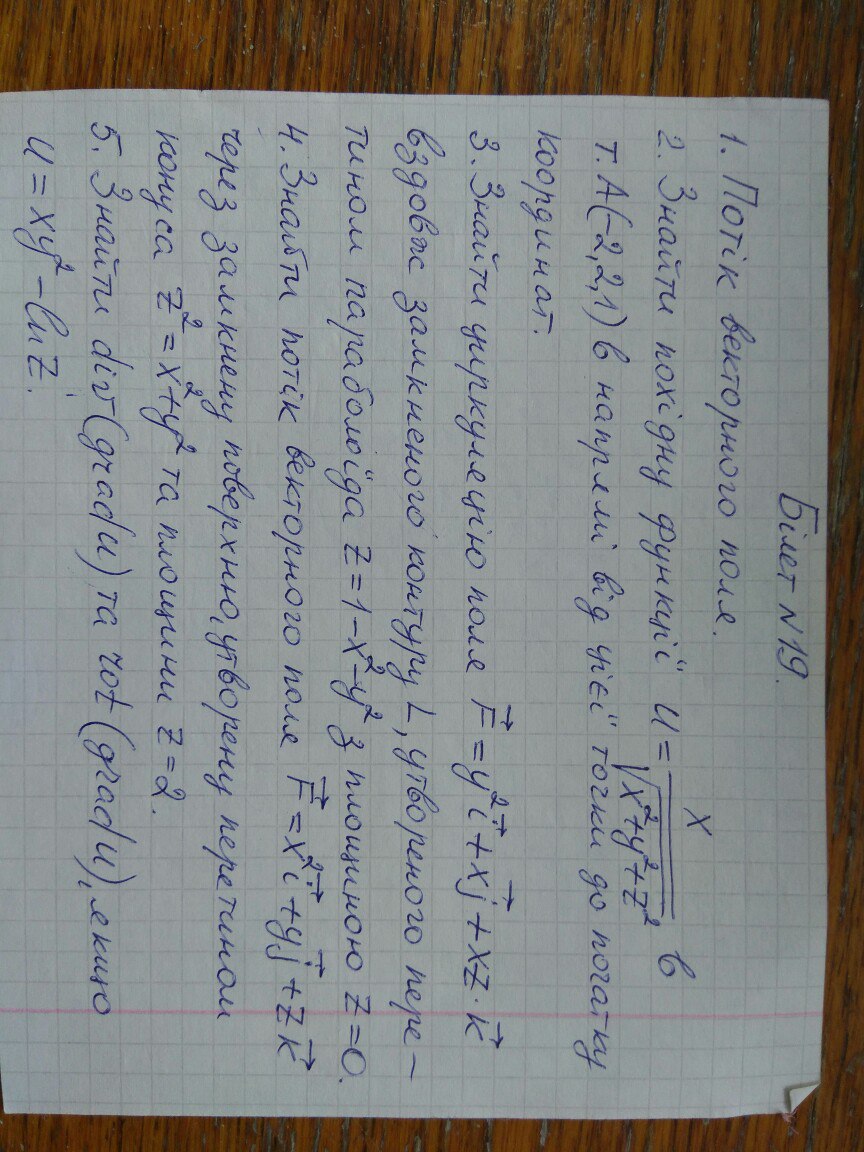 Білет №19.
1. Потік векторного поля.
2. Знайти похідну функції u = x/√(x²+y²+z²) в
т. А(-2,2,1) в напрямі від цієї точки до початку
координат.
3. Знайти циркуляцію поля F⃗ = y²i⃗ + xj⃗ + xz·k⃗
вздовж замкненого контуру L, утвореного пере-
тином параболоїда z = 1-x²-y² з площиною z=0.
4. Знайти потік векторного поля F⃗ = x²i⃗ + yj⃗ + zk⃗
через замкнену поверхню, утворену перетином
конуса z² = x²+y² та площини z=2.
5. Знайти div(grad u) та rot(grad u), якщо
u = xy² - ln z.